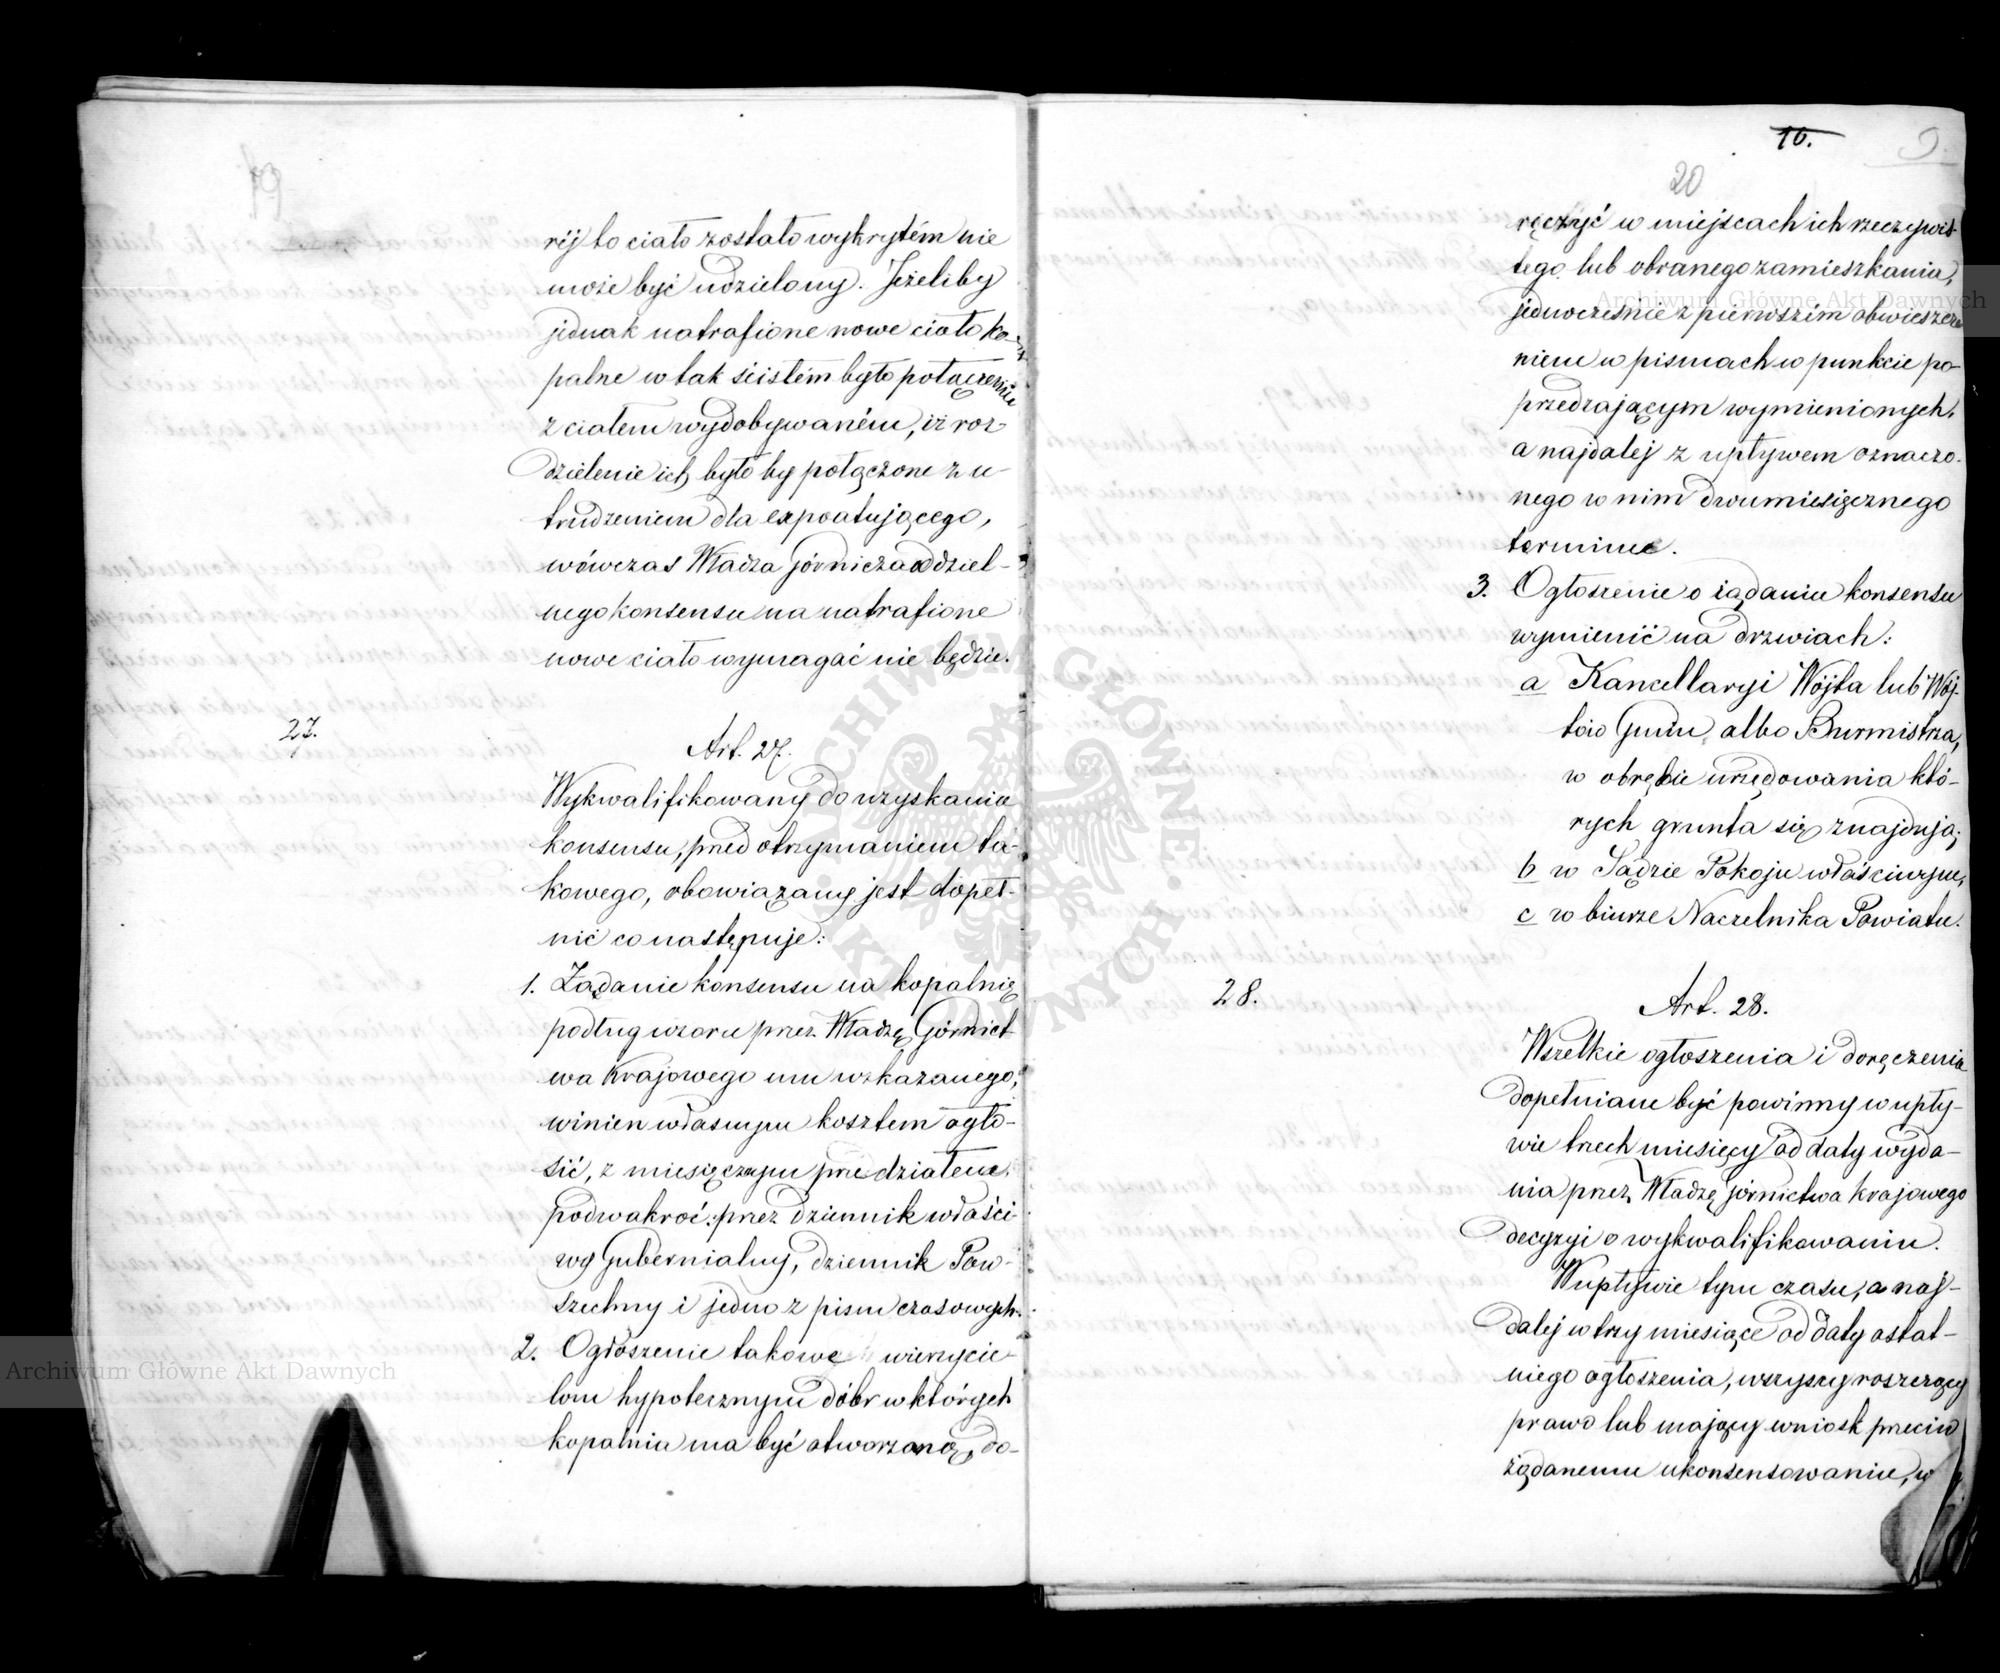 19
rij to ciało zostało wykrytém nie
może być udzielony. Jeżeliby
jednak natrafione nowe ciało ko-
palne w tak ścistém było połączeniu
z ciałem wydobywaném, iż roz-
dzielenie ich było by połączone z u-
trudzeniem dla expoatującego,
wówczas Władza Górnicza oddziel-
nego konsensu na natrafione
nowe ciało wymagać nie będzie.
27.
Art. 27.
Wykwalifikowany do uzyskania
konsensu, przed otrzymaniem ta-
kowego, obowiązany jest dopeł-
nić co następuje:
1. Żądanie konsensu na kopalnię
podług wzoru przez Władzę Górnict
wa Krajowego mu wskazanego,
winien własnym kosztem ogło-
sić, z miesięcznym przedziałem
podwakroć: przez Dziennik właści-
wy Gubernialny, dziennik Pow-
szechny i jedno z pism czasowych.
2. Ogłoszenie takowe wierzycie-
lom hypotecznym dóbr w których
kopalnia ma być otworzoną, do-
10.
9.
20
ręczyć w miejscach ich rzeczywis-
tego lub obranego zamieszkania,
jednocześnie z pierwszim obwieszcze
niem w pismach w punkcie po-
przedzającym wymienionych,
a najdalej z upływem oznaczo-
nego w nim dwumiesięcznego
terminu.
3. Ogłoszenie o żądaniu konsensu
wymienić na drzwiach:
a Kancellaryi Wójta lub Wój-
tów Gmin albo Burmistrza,
w obrębie urzędowania któ-
rych grunta się znajdują;
b w Sądzie Pokoju właściwym,
c w biurze Naczelnika Powiatu.
28.
Art. 28.
Wszelkie ogłoszenia i doręczenia
dopełniane być powinny w upły-
wie trzech miesięcy od daty wyda-
nia przez Władzę Górnictwa Krajowego
decyzyi o wykwalifikowaniu.
W upływie tym czasu, a naj-
dalej w trzy miesiące od daty ostat-
niego ogłoszenia, wszyscy roszczący
prawo lub mający wniosk przeciw
żądanemu ukonsensowaniu, w
Archiwum Główne Akt Dawnych
Archiwum Główne Akt Dawnych
ARCHIWUM GŁÓWNE AKT DAWNYCH